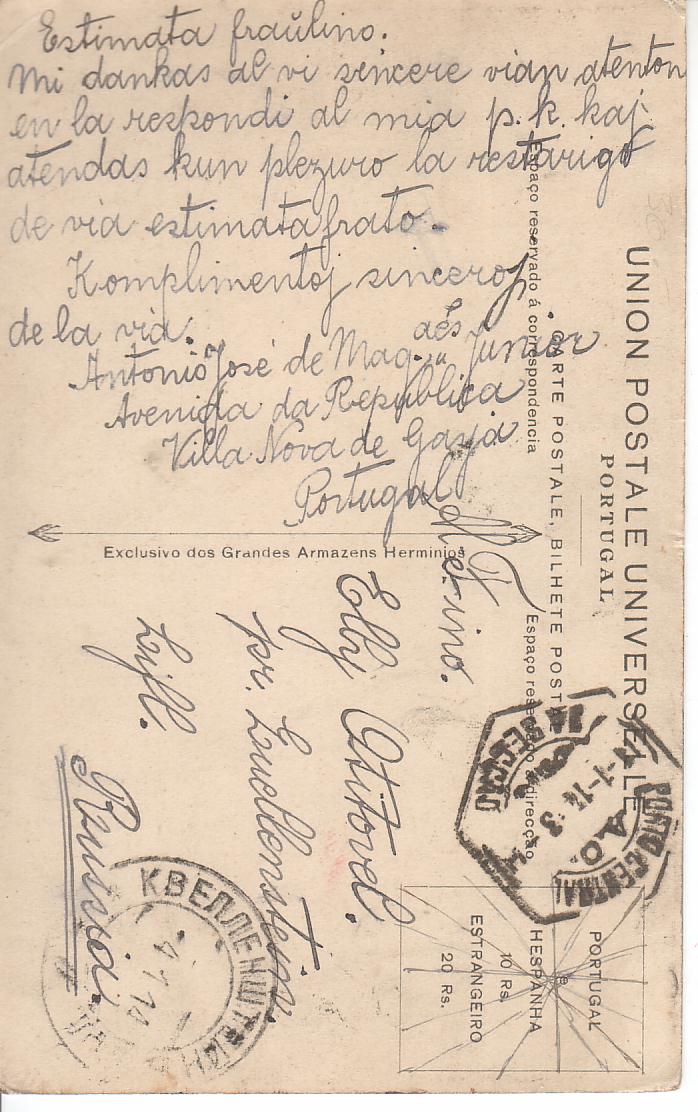 Estimata fraŭlino.
Mi dankas al vi sincere vian atenton
en la respondi al mia p.k. kaj
atendas kun plezuro la restarigo
de via estimata frato.
Komplimentoj sinceroj
de la via.
Antonio José de Mag.aẽs Junior
Avenida da Republica
Villa Nova de Gaya
Portugal
UNION POSTALE UNIVERSELLE
PORTUGAL
CARTE POSTALE, BILHETE POSTAL
Espaço reservado á correspondencia
Espaço reservado á direcção
Exclusivo dos Grandes Armazens Herminios
F-ino.
Elly
pr. Quellenstein,
Livl.
Russia.
PORTO CENTRAL
3ª SECÇÃO
1-14
КВЕЛЛЕНШТЕЙН
4 1 14
PORTUGAL
E
HESPANHA
10 Rs
ESTRANGEIRO
20 Rs.